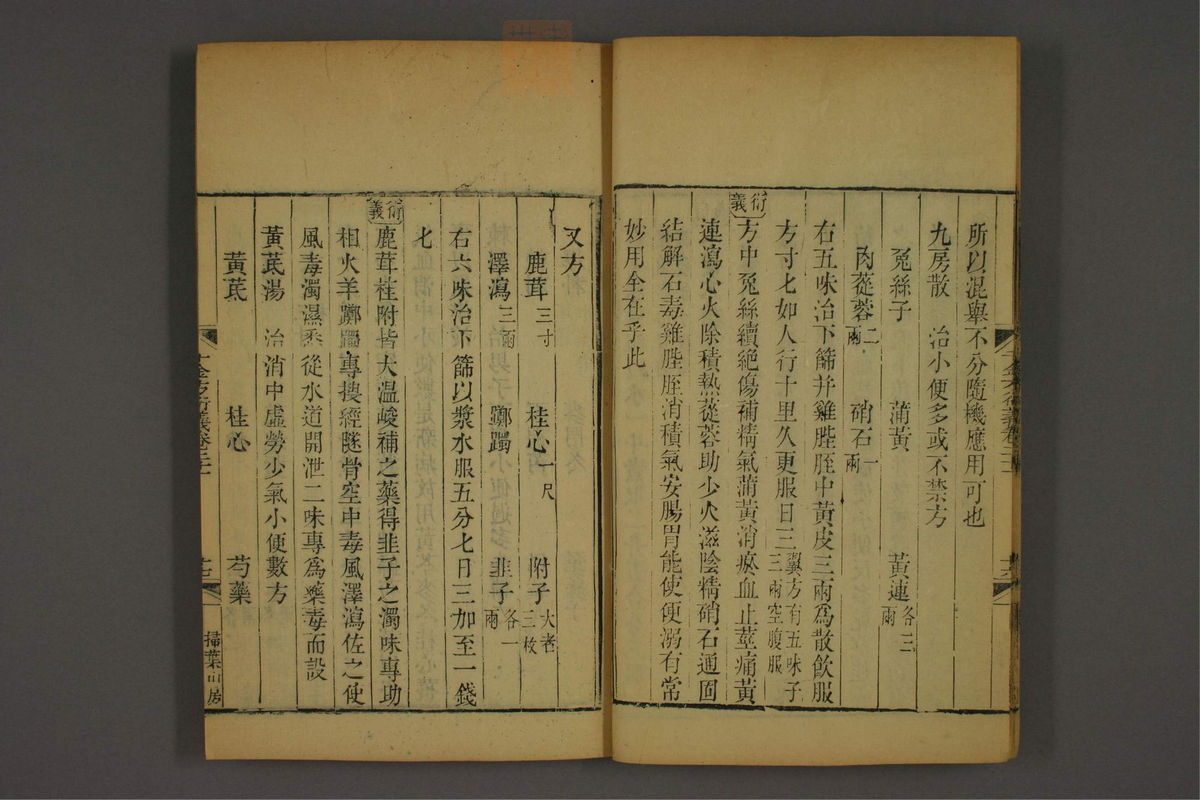 所以混與不分隨機應用可也
九房散　治小便多或不禁方
菟絲子　蒲黃　黃連各三兩
肉蓯蓉二兩　硝石一兩
右五味治下篩并雞膍胵中黃皮三兩為散飲服
方寸匕如人行十里久更服日三翼方有五味子三兩空腹服
衍義
方中菟絲續絕傷補精氣蒲黃消瘀血止莖痛黃
連瀉心火除積熱蓯蓉助少火滋陰精硝石通固
結解石毒雞膍胵消積氣安腸胃能使便溺有常
妙用全在乎此
又方
鹿茸三寸　桂心一尺　附子大者三枚
澤瀉三兩　躑躅　韭子各一兩
右六味治下篩以漿水服五分匕日三加至一錢
匕
衍義
鹿茸桂附皆大溫峻補之藥得韭子之濁味專助
相火羊躑躅專搜經隧骨空中毒風澤瀉佐之使
風毒濁濕悉從水道開泄二味專為藥毒而設
黃芪湯　治消中虛勞少氣小便數方
黃芪　桂心　芍藥
千金方衍義卷二十一
十七
掃葉山房